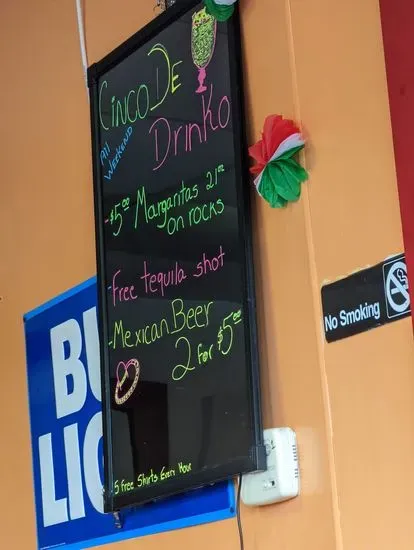 Cinco De
Drinko
All
Weekend
-$5.00 Margaritas 21oz
on rocks
-Free tequila shot
-Mexican Beer
2 for $5.00
5 Free Shirts Every Hour
No Smoking
BU
LIG